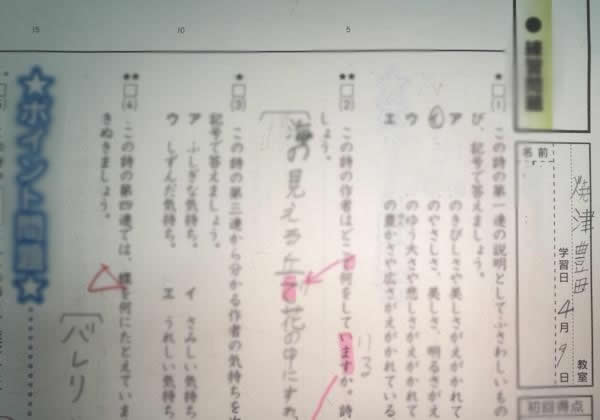 ● 練習問題
名前
焼津豊田
教室
学習日 4月9日
初回得点
5
10
15
★□(1) この詩の第一連の説明としてふさわしいもの
び、記号で答えましょう。
ア のきびしさや美しさがえがかれて
イ のやさしさ、美しさ、明るさがえ
ウ のゆう大さや悲しさがえがかれている
エ の豊かさや広さがえがかれている
★★□(2) この詩の作者はどこで何をしていますか。詩
しょう。
いる
海の見える丘で花の中にすわ
★□(3) この詩の第三連から分かる作者の気持ちを
記号で答えましょう。
ア ふしぎな気持ち。 イ さみしい気持ち
ウ しずんだ気持ち。 エ うれしい気持ち
★★□(4) この詩の第四連では、蝶を何にたとえていま
きぬきましょう。
バレリ
★ポイント問題★